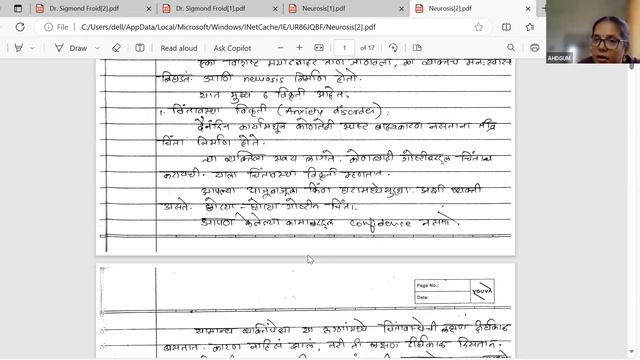 Dr. Sigmond Froid[2].pdf
Dr. Sigmond Froid[1].pdf
Neurosis[1].pdf
Neurosis[2].pdf
File
C:/Users/dell/AppData/Local/Microsoft/Windows/INetCache/IE/UR86JQBF/Neurosis[2].pdf
Draw
Read aloud
Ask Copilot
1 of 17
आणि neurosis निर्माण होतो.
यात मुख्य 6 विकृती आहेत.
1. चिंतावस्था विकृती (Anxiety disorder)
दैनंदिन कार्यामधून कोणतेही स्पष्ट बाह्यकारण नसताना तीव्र
चिंता निर्माण होते.
त्या व्यक्तीला सवय लागते. कोणत्याही गोष्टीबद्दल चिंताच
करायची. याला चिंतावस्था विकृती म्हणतात.
आपल्या आजूबाजूला किंवा घरामध्येसुद्धा अशी व्यक्ती
असते. छोट्या-छोट्या गोष्टीत चिंता.
आपण केलेल्या कामाबद्दल confidence नसतो.
Page No.:
Date:
YOUVA
सामान्य व्यक्तीपेक्षा या रुग्णांमध्ये चिंतावस्थेची लक्षणं दीर्घकाळ
असतात. कारण माहित झालं, तरी ती लक्षणं दीर्घकाळ दिसतात.
AHDGUM